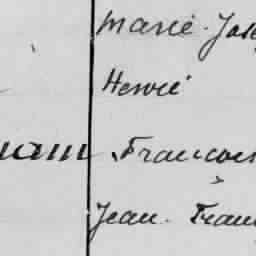 Marie-Jose
Hervé
nam Francois
Jean-Fran